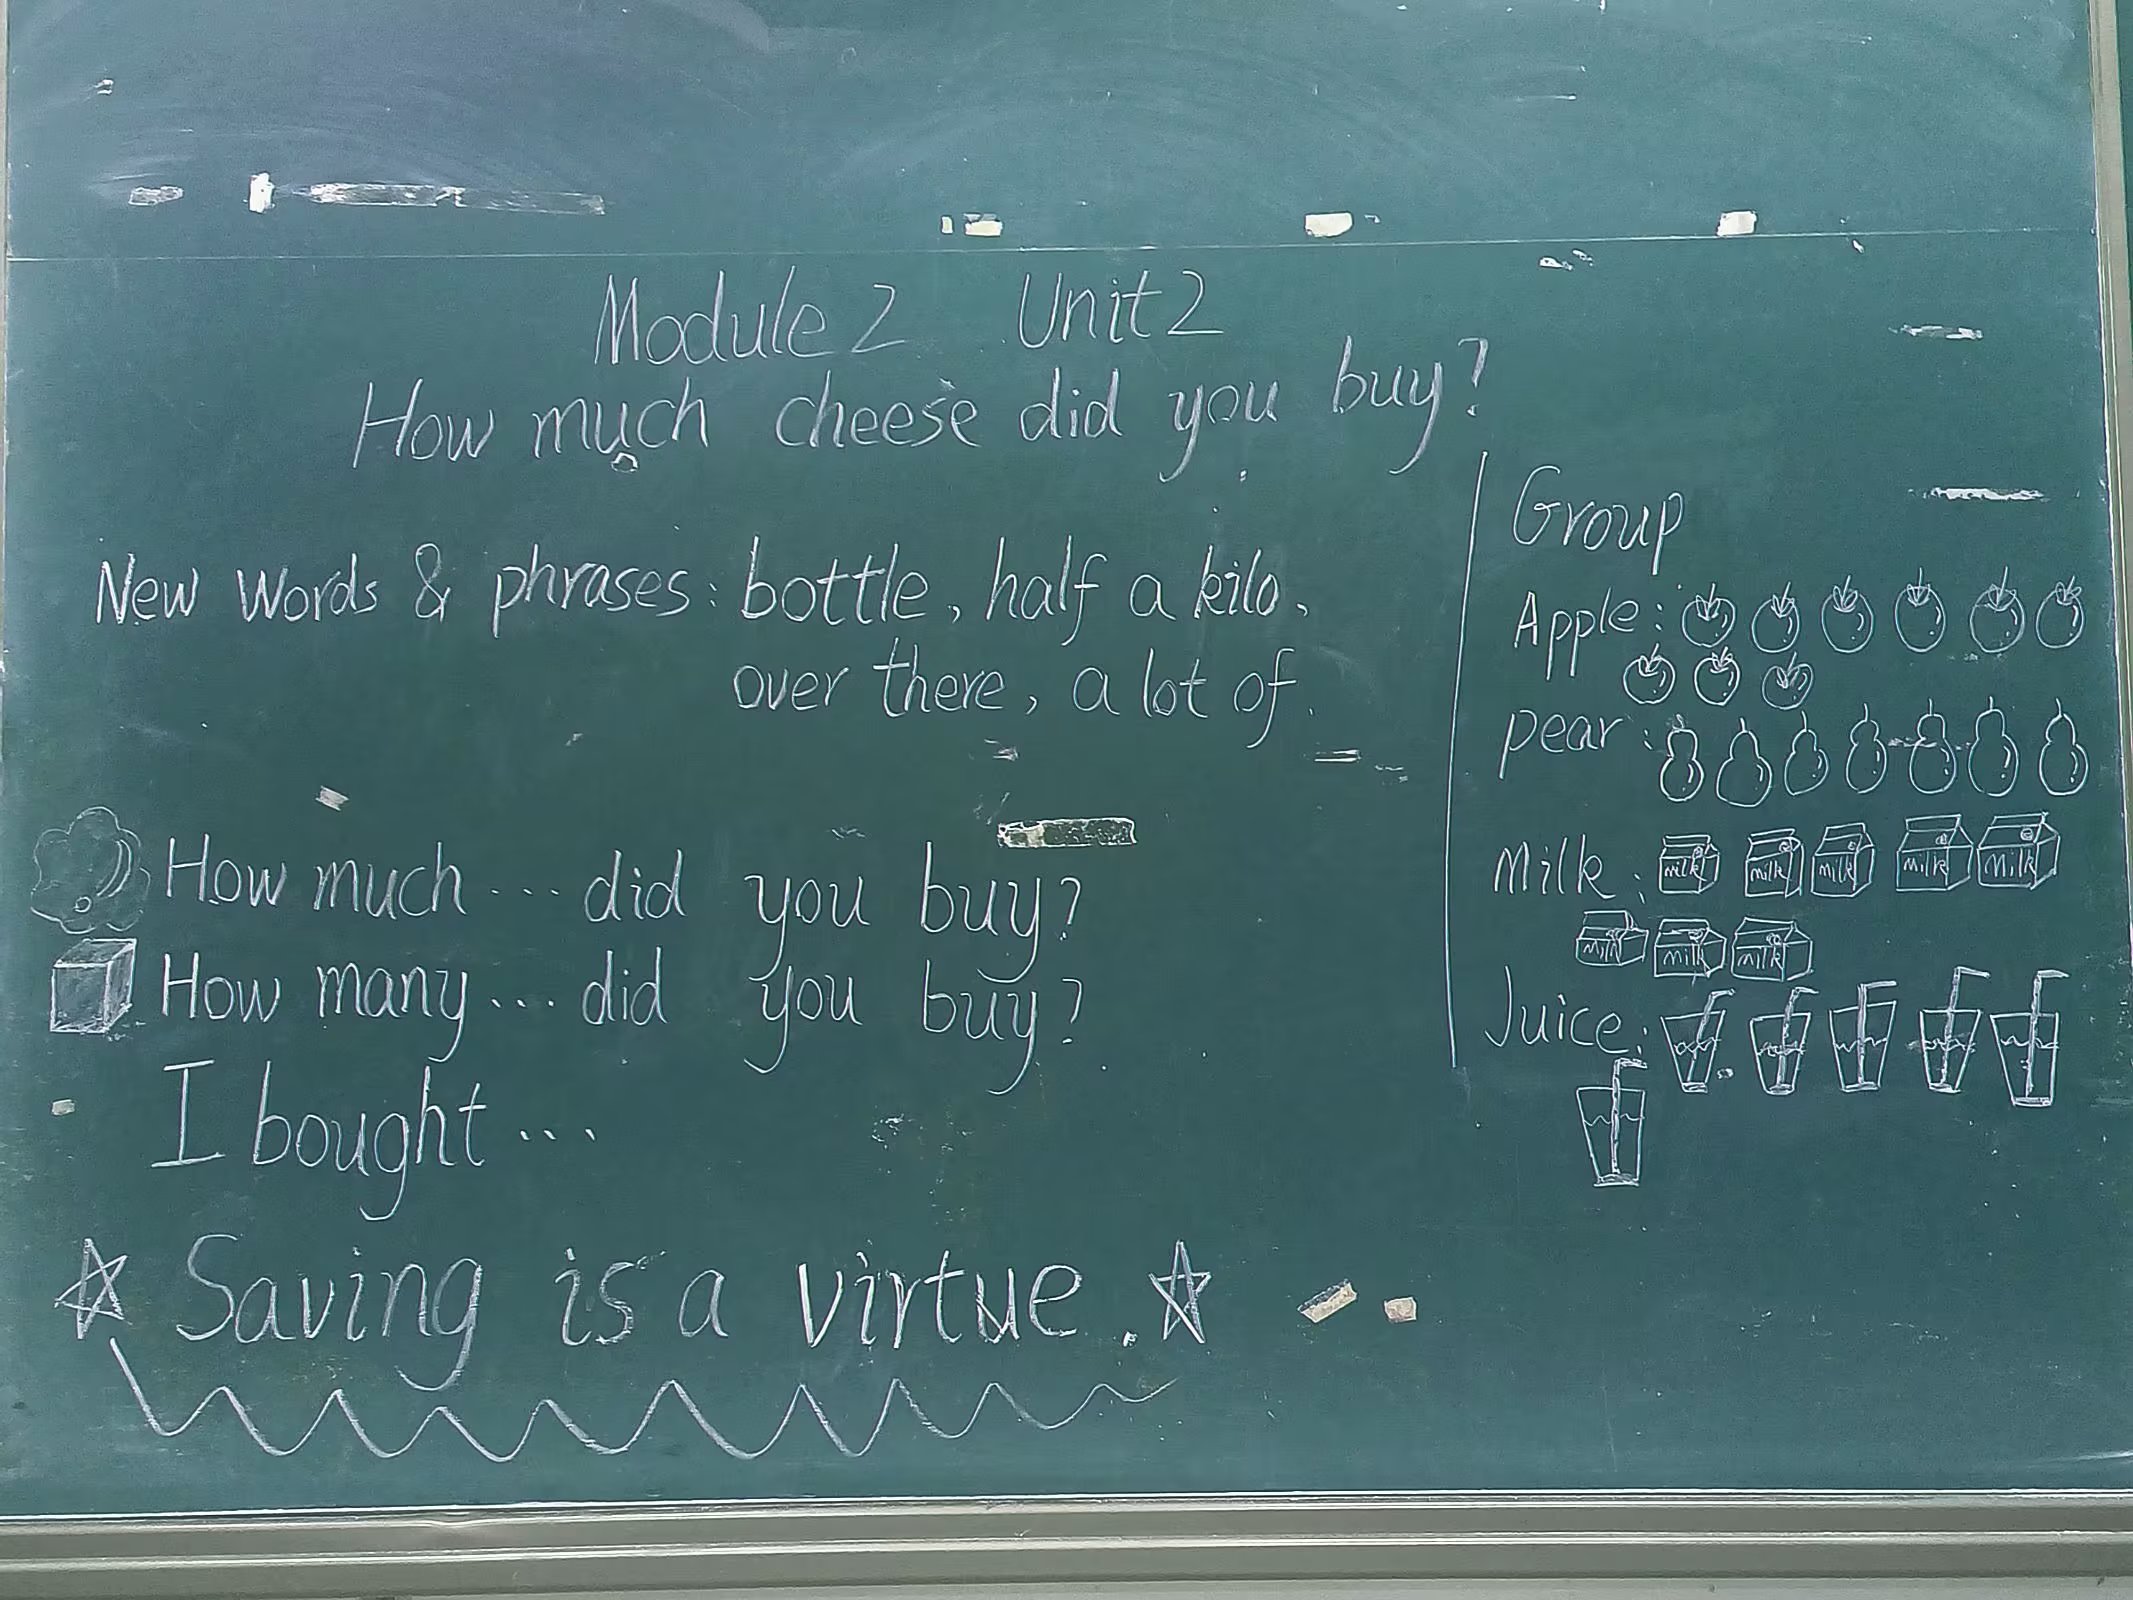 Module 2 Unit 2
How much cheese did you buy?
New Words & phrases: bottle, half a kilo,
over there, a lot of.
How much ... did you buy?
How many ... did you buy?
I bought ...
Saving is a virtue.
Group
Apple:
pear:
Milk:
milk milk milk milk milk
milk milk milk
Juice: